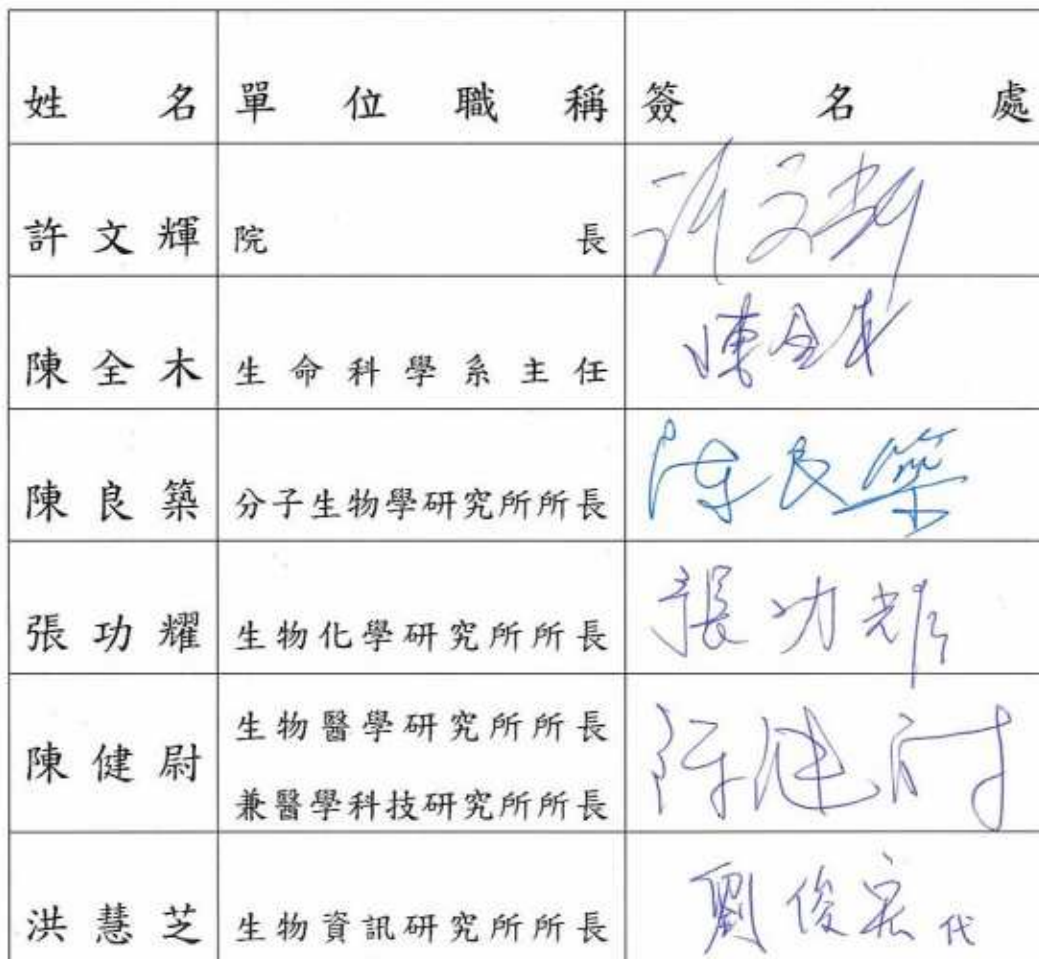 姓名 單位職稱 簽名處
許文輝 院長 許文輝
陳全木 生命科學系主任 陳全木
陳良築 分子生物學研究所所長 陳良築
張功耀 生物化學研究所所長 張功耀
陳健尉 生物醫學研究所所長 陳健尉
兼醫學科技研究所所長
洪慧芝 生物資訊研究所所長 劉俊宏代